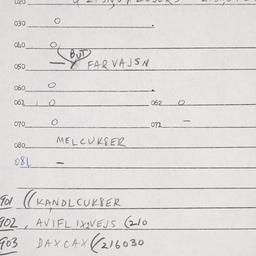 020
030 O .
040 O
BUT
050 — FARVAJSN
060 O .
061 O 062 O
070 O 071 —
080 MELCUKSER
081 —
901 ((KANDLCUKSER
902, AVIFL
903 DAXCAX (216030